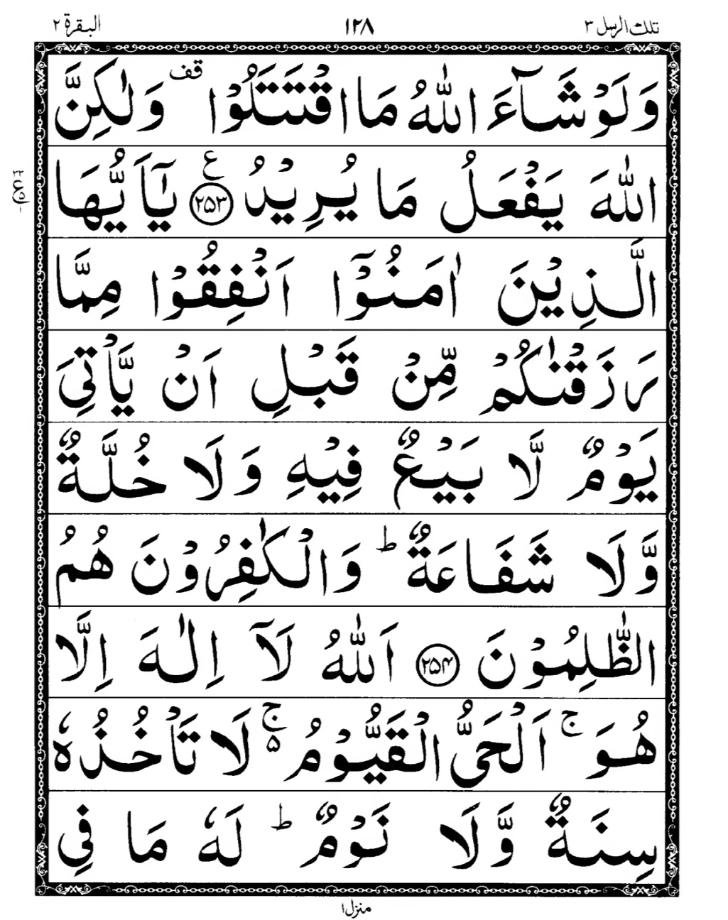 تلك الرسل ٣ ١٢٨ البقرة ٢
وَلَوۡ شَآءَ اللّٰهُ مَا اقۡتَتَلُوۡا ۟قف وَلٰكِنَّ
اللّٰهَ يَفۡعَلُ مَا يُرِيۡدُ ﴿٢٥٣﴾ ع يٰٓاَيُّهَا
الَّذِيۡنَ اٰمَنُوۡٓا اَنۡفِقُوۡا مِمَّا
رَزَقۡنٰكُمۡ مِّنۡ قَبۡلِ اَنۡ يَّاۡتِىَ
يَوۡمٌ لَّا بَيۡعٌ فِيۡهِ وَلَا خُلَّةٌ
وَّلَا شَفَاعَةٌ ؕ وَالۡكٰفِرُوۡنَ هُمُ
الظّٰلِمُوۡنَ ﴿٢٥٤﴾ اَللّٰهُ لَاۤ اِلٰهَ اِلَّا
هُوَ ۚ اَلۡحَىُّ الۡقَيُّوۡمُ ۚ ۵ لَا تَاۡخُذُهٗ
سِنَةٌ وَّلَا نَوۡمٌ ؕ لَهٗ مَا فِى
منزل ١